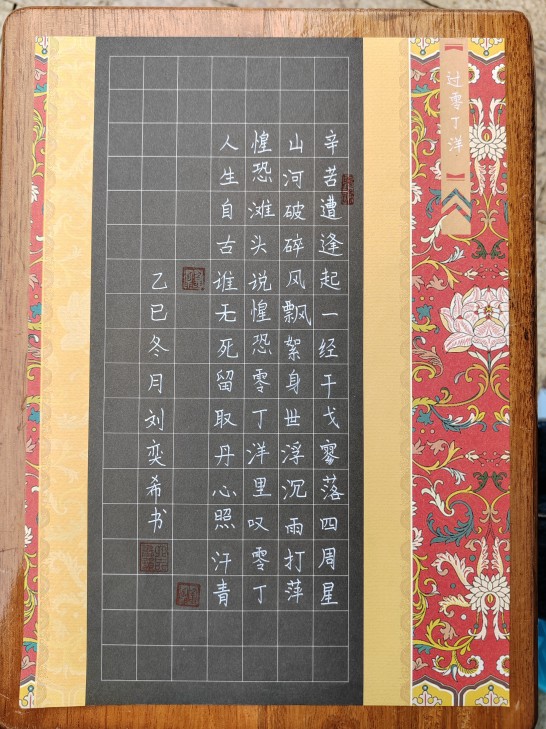 过零丁洋
辛苦遭逢起一经干戈寥落四周星
山河破碎风飘絮身世浮沉雨打萍
惶恐滩头说惶恐零丁洋里叹零丁
人生自古谁无死留取丹心照汗青
乙巳冬月刘奕希书